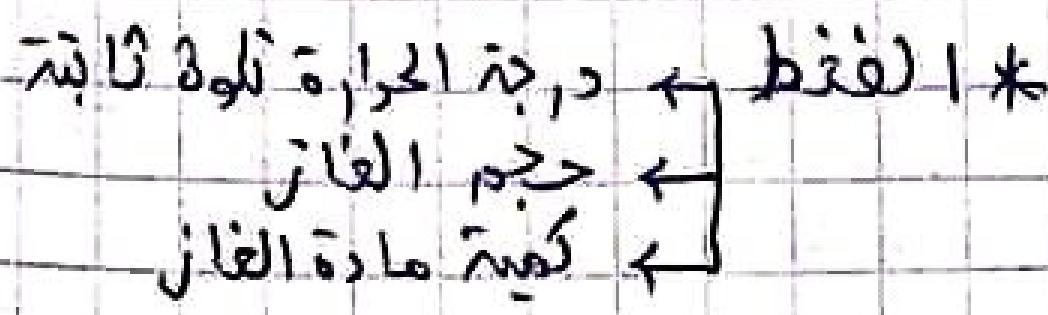 * الضغط ← درجة الحرارة تكون ثابتة
← حجم الغاز
← كمية مادة الغاز